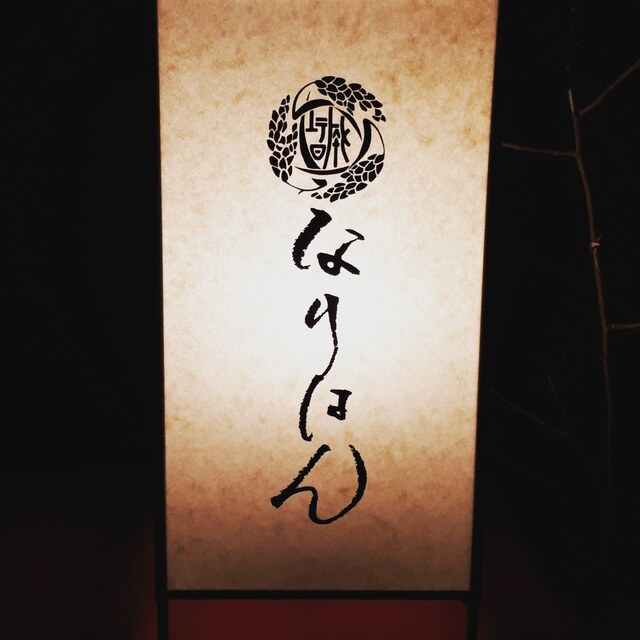 なりはん